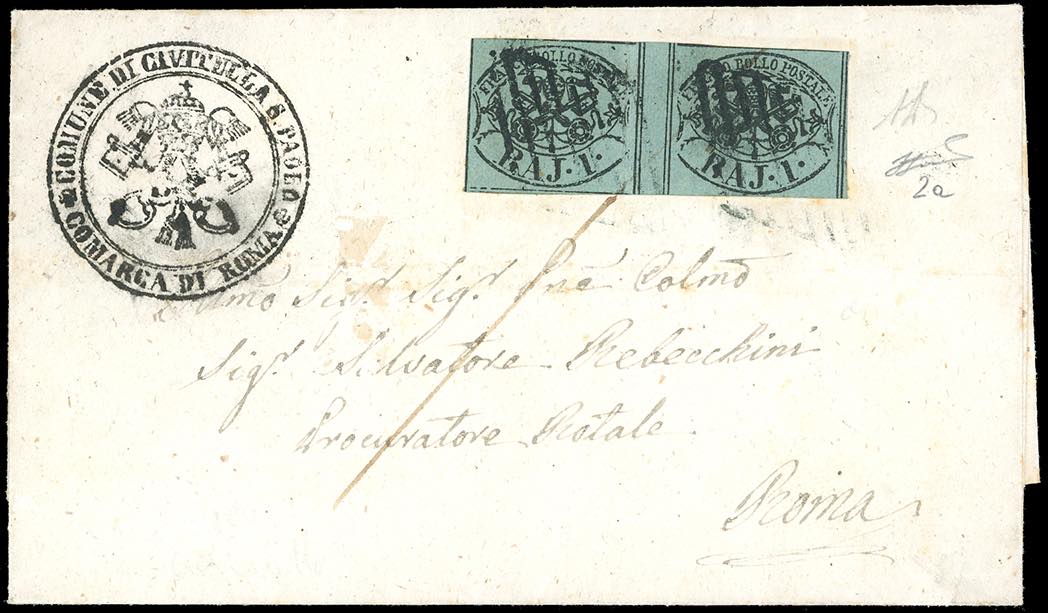 COMUNE DI CIVITELLA S. PAOLO
COMARCA DI ROMA
FRANCO BOLLO POSTALE
RAJ. 1.
FRANCO BOLLO POSTALE
RAJ. 1.
2a
Sig.r Sig.r Pne Colmo
Sig.r Salvatore Rebecchini
Procuratore Rotale
Roma